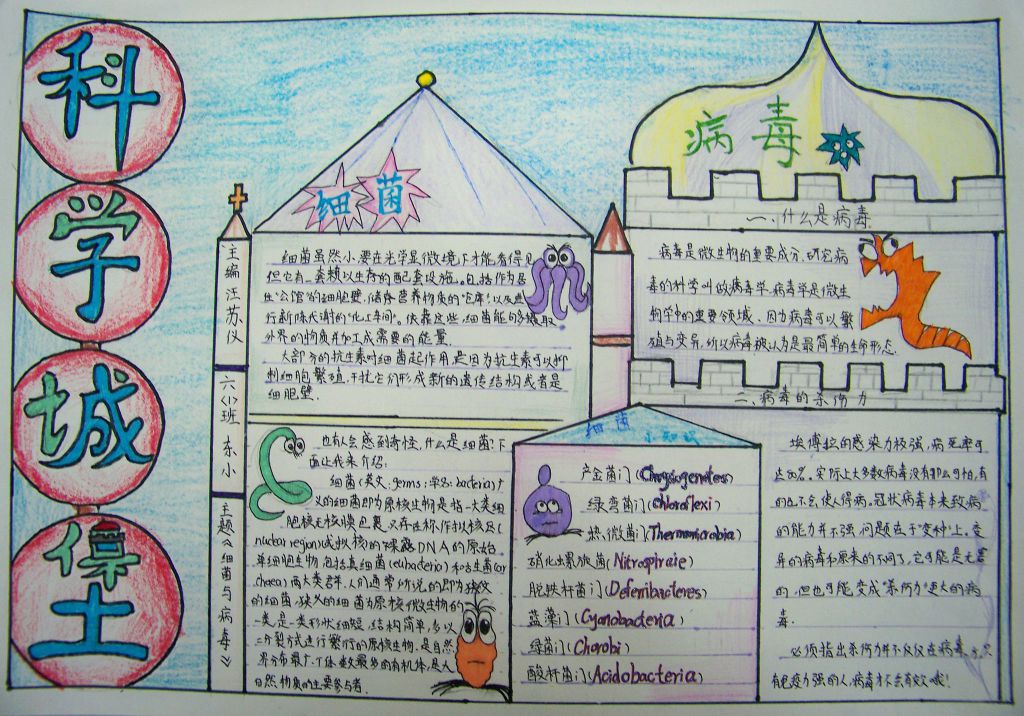 科
学
城
堡
主编汪苏仪
六〈1〉班
东小
主题《细菌与病毒》
细菌
细菌虽然小,要在光学显微境下才能看得见
但它有一套赖以生存的配套设施。包括作为居
住"公馆"的细胞壁,储存营养物质的"仓库",以及进
行新陈代谢的"化工车间"。依靠这些,细菌能包多摄取
外界的物质并加工成需要的能量.
大部分的抗生素对细菌起作用是因为抗生素可以抑
制细胞繁殖,干扰它们形成新的遗传结构或者是
细胞壁.
也有人会感到奇怪,什么是细菌?下
面让我来介绍:
细菌(英文:germs;学名:bacteria)广
义的细菌即为原核生物是指一大类
胞核无核膜包裹,只存在称作拟核区(
nuclear region)(或拟核)的裸露DNA的原始
单细胞生物,包括真细菌(eubacteria)和古生菌(ar
chaea)两大类群.人们通常所说的即为狭义
的细菌,狭义的细菌为原核微生物的一
类,是一类形状细短,结构简单,多以
二分裂方式进行繁衍的原核生物,是自然
界分布最广、个体数最多的有机体,是大
自然物质的主要参与者.
细菌
小知识
产金菌门(Chrysiogenetes)
绿弯菌门(Chloroflexi)
热微菌门(Thermomicrobia)
硝化螺旋菌(Nitrospirae)
脱铁杆菌门(Deferribacteres)
蓝藻门(Cyanobacteria)
绿菌门(Chorobi)
酸杆菌门(Acidobacteria)
病毒
一、什么是病毒
病毒是微生物的重要成分,研究病
毒的科学叫做病毒学.病毒学是微生
物学中的重要领域.因为病毒可以繁
殖与变异,所以病毒被认为是最简单的生命形态.
二、病毒的杀伤力
埃博拉的感染力极强,病死率可
达80%。实际上大多数病毒没有那么可怕,有
的也不会使人得病。冠状病毒本来致病
的能力并不强,问题在于"变种"上。变
异的病毒和原来的不同了,它可能是无害
的,但也可能变成"杀伤力"更大的病
毒.
必须指出杀伤力并不仅仅在病毒,
有免疫力强的人,病毒才不会有效哦!